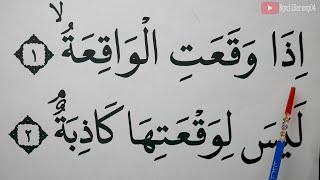 اِذَا وَقَعَتِ الْوَاقِعَةُ ۙ ﴿١﴾
لَيْسَ لِوَقْعَتِهَا كَاذِبَةٌ ۘ ﴿٢﴾